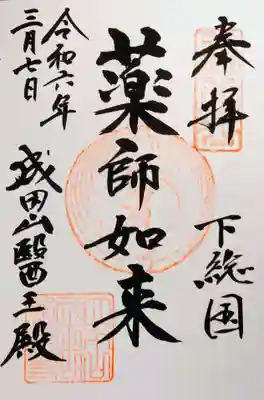 奉拝
下総国
薬師如来
成田山醫王殿
令和六年
三月七日